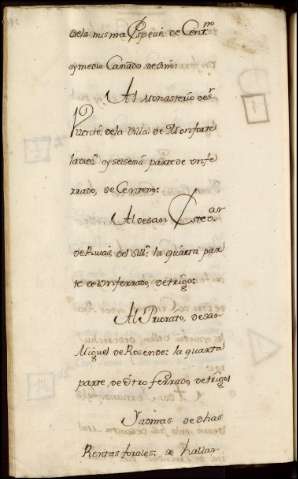 dela misma Especie de Centno
y medio Canado de vino:
Al Monasterio de Sn
Vicente, dela Villa de Monforte
la diez y seisema parte de un fe
rrado, de Centeno:
Al de San Estevan
de Rivas del Sill: la quarta par
te de un ferrado, de trigo:
Al Priorato, de San
Miguel de Rosende: la quarta
parte, de otro ferrado, de trigo
Y ademas de dhas
Rentas forales: se hallan